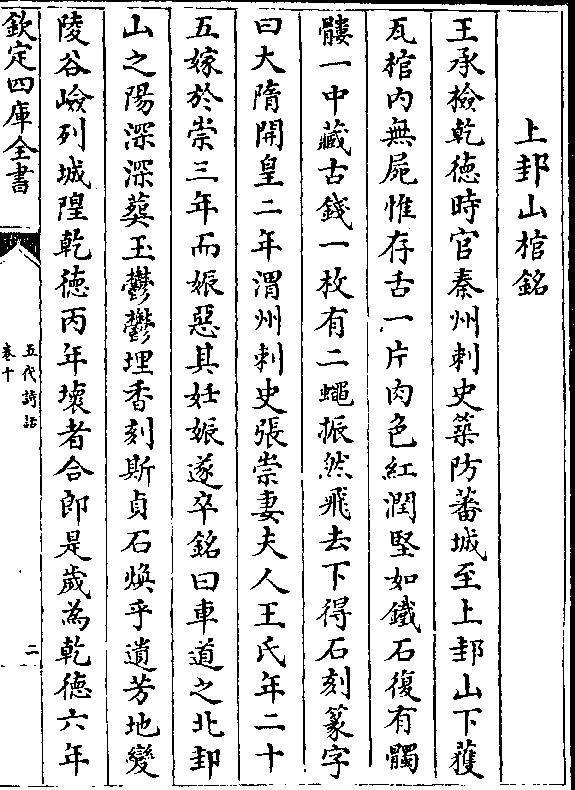 上邽山棺銘
王承檢乾德時官秦州刺史築防蕃城至上邽山下獲
瓦棺内無屍惟存舌一片肉色紅潤堅如鐵石復有髑
髏一中藏古錢一枚有二蠅振然飛去下得石刻篆字
曰大隋開皇二年渭州刺史張崇妻夫人王氏年二十
五嫁於崇三年而娠惡其妊娠遂卒銘曰車道之北邽
山之陽深深葬玉鬱鬱埋香刻斯貞石煥乎遺芳地變
陵谷嶮列城隍乾德丙年壞者合郎是歲為乾德六年
欽定四庫全書
五代詩話
卷十
二